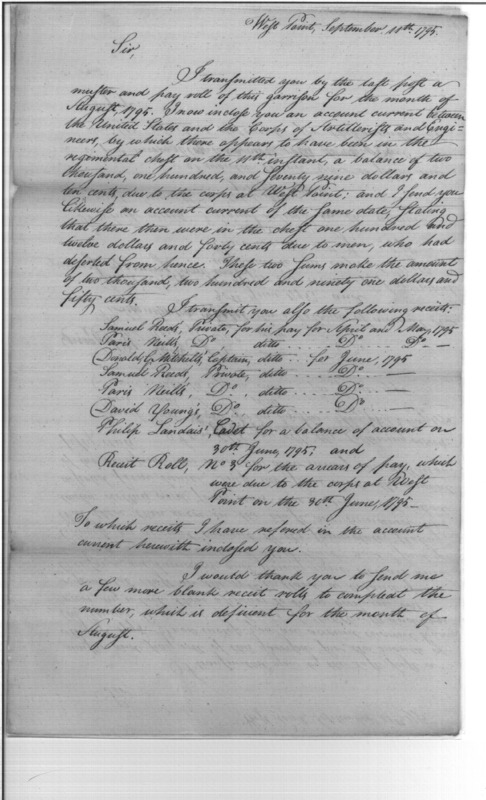 West Point, September 11th. 1795.
Sir,
I transmitted you by the last post a
muster and pay roll of this garrison for the month of
August, 1795. I now inclose you an account current between
the United States and the Corps of Artillerists and Engi=
neers, by which there appears to have been in the
regimental chest on the 11th instant, a balance of two
thousand, one hundred, and seventy nine dollars and
ten cents, due to the corps at West Point; and I send you
likewise an account current of the same date, stating
that there then were in the chest one hundred and
twelve dollars and forty cents due to men, who had
deserted from hence. These two sums make the amount
of two thousand, two hundred and ninety one dollars and
fifty cents.
I transmit you also the following receits:
Samuel Reeds, Private, for his pay for April and May, 1795
Paris Neills, Do ditto .... Do ... Do —
Donald G. Mitchells, Captain, ditto ... for June, 1795
Samuel Reeds, Private, ditto .... Do —
Paris Neills, Do ditto .... Do —
David Youngs, Do ditto .... Do —
Philip Landais', Cadet for a balance of account on
30th June, 1795; and
Receit Roll, No 3 for the arrears of pay, which
were due to the corps at West
Point on the 30th June, 1795—
To which receits I have refered in the account
current herewith inclosed you.
I would thank you to send me
a few more blank receit rolls to compleat the
number, which is deficient for the month of
August.